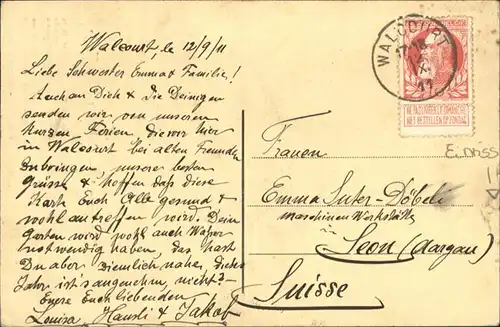 Walcourt, le 12/9/11
Liebe Schwester Emma & Familie!
Auch an Dich & die Deinigen
senden wir von unseren
kurzen Ferien, die wir hier
in Walcourt bei alten Freunden
zubringen unsere besten
Grüsse & hoffen dass diese
Karte Euch Alle gesund &
wohl antreffen wird. Dein
Garten wird wohl auch Wasser
notwendig haben das hast
Du aber ziemlich nahe, dieses
Jahr ist's angenehm, nicht?-
Euere Euch liebenden
Louisa, Hansli & Jakob
WALCOURT
11
NIET BESTELLEN OP ZONDAG
Frauen
Emma Suter-Döbeli
maschinen Werkstätte
in
Seon (Aargau)
Suisse